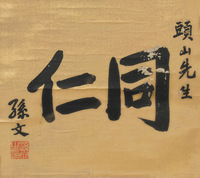 頭山先生
同仁
孫文